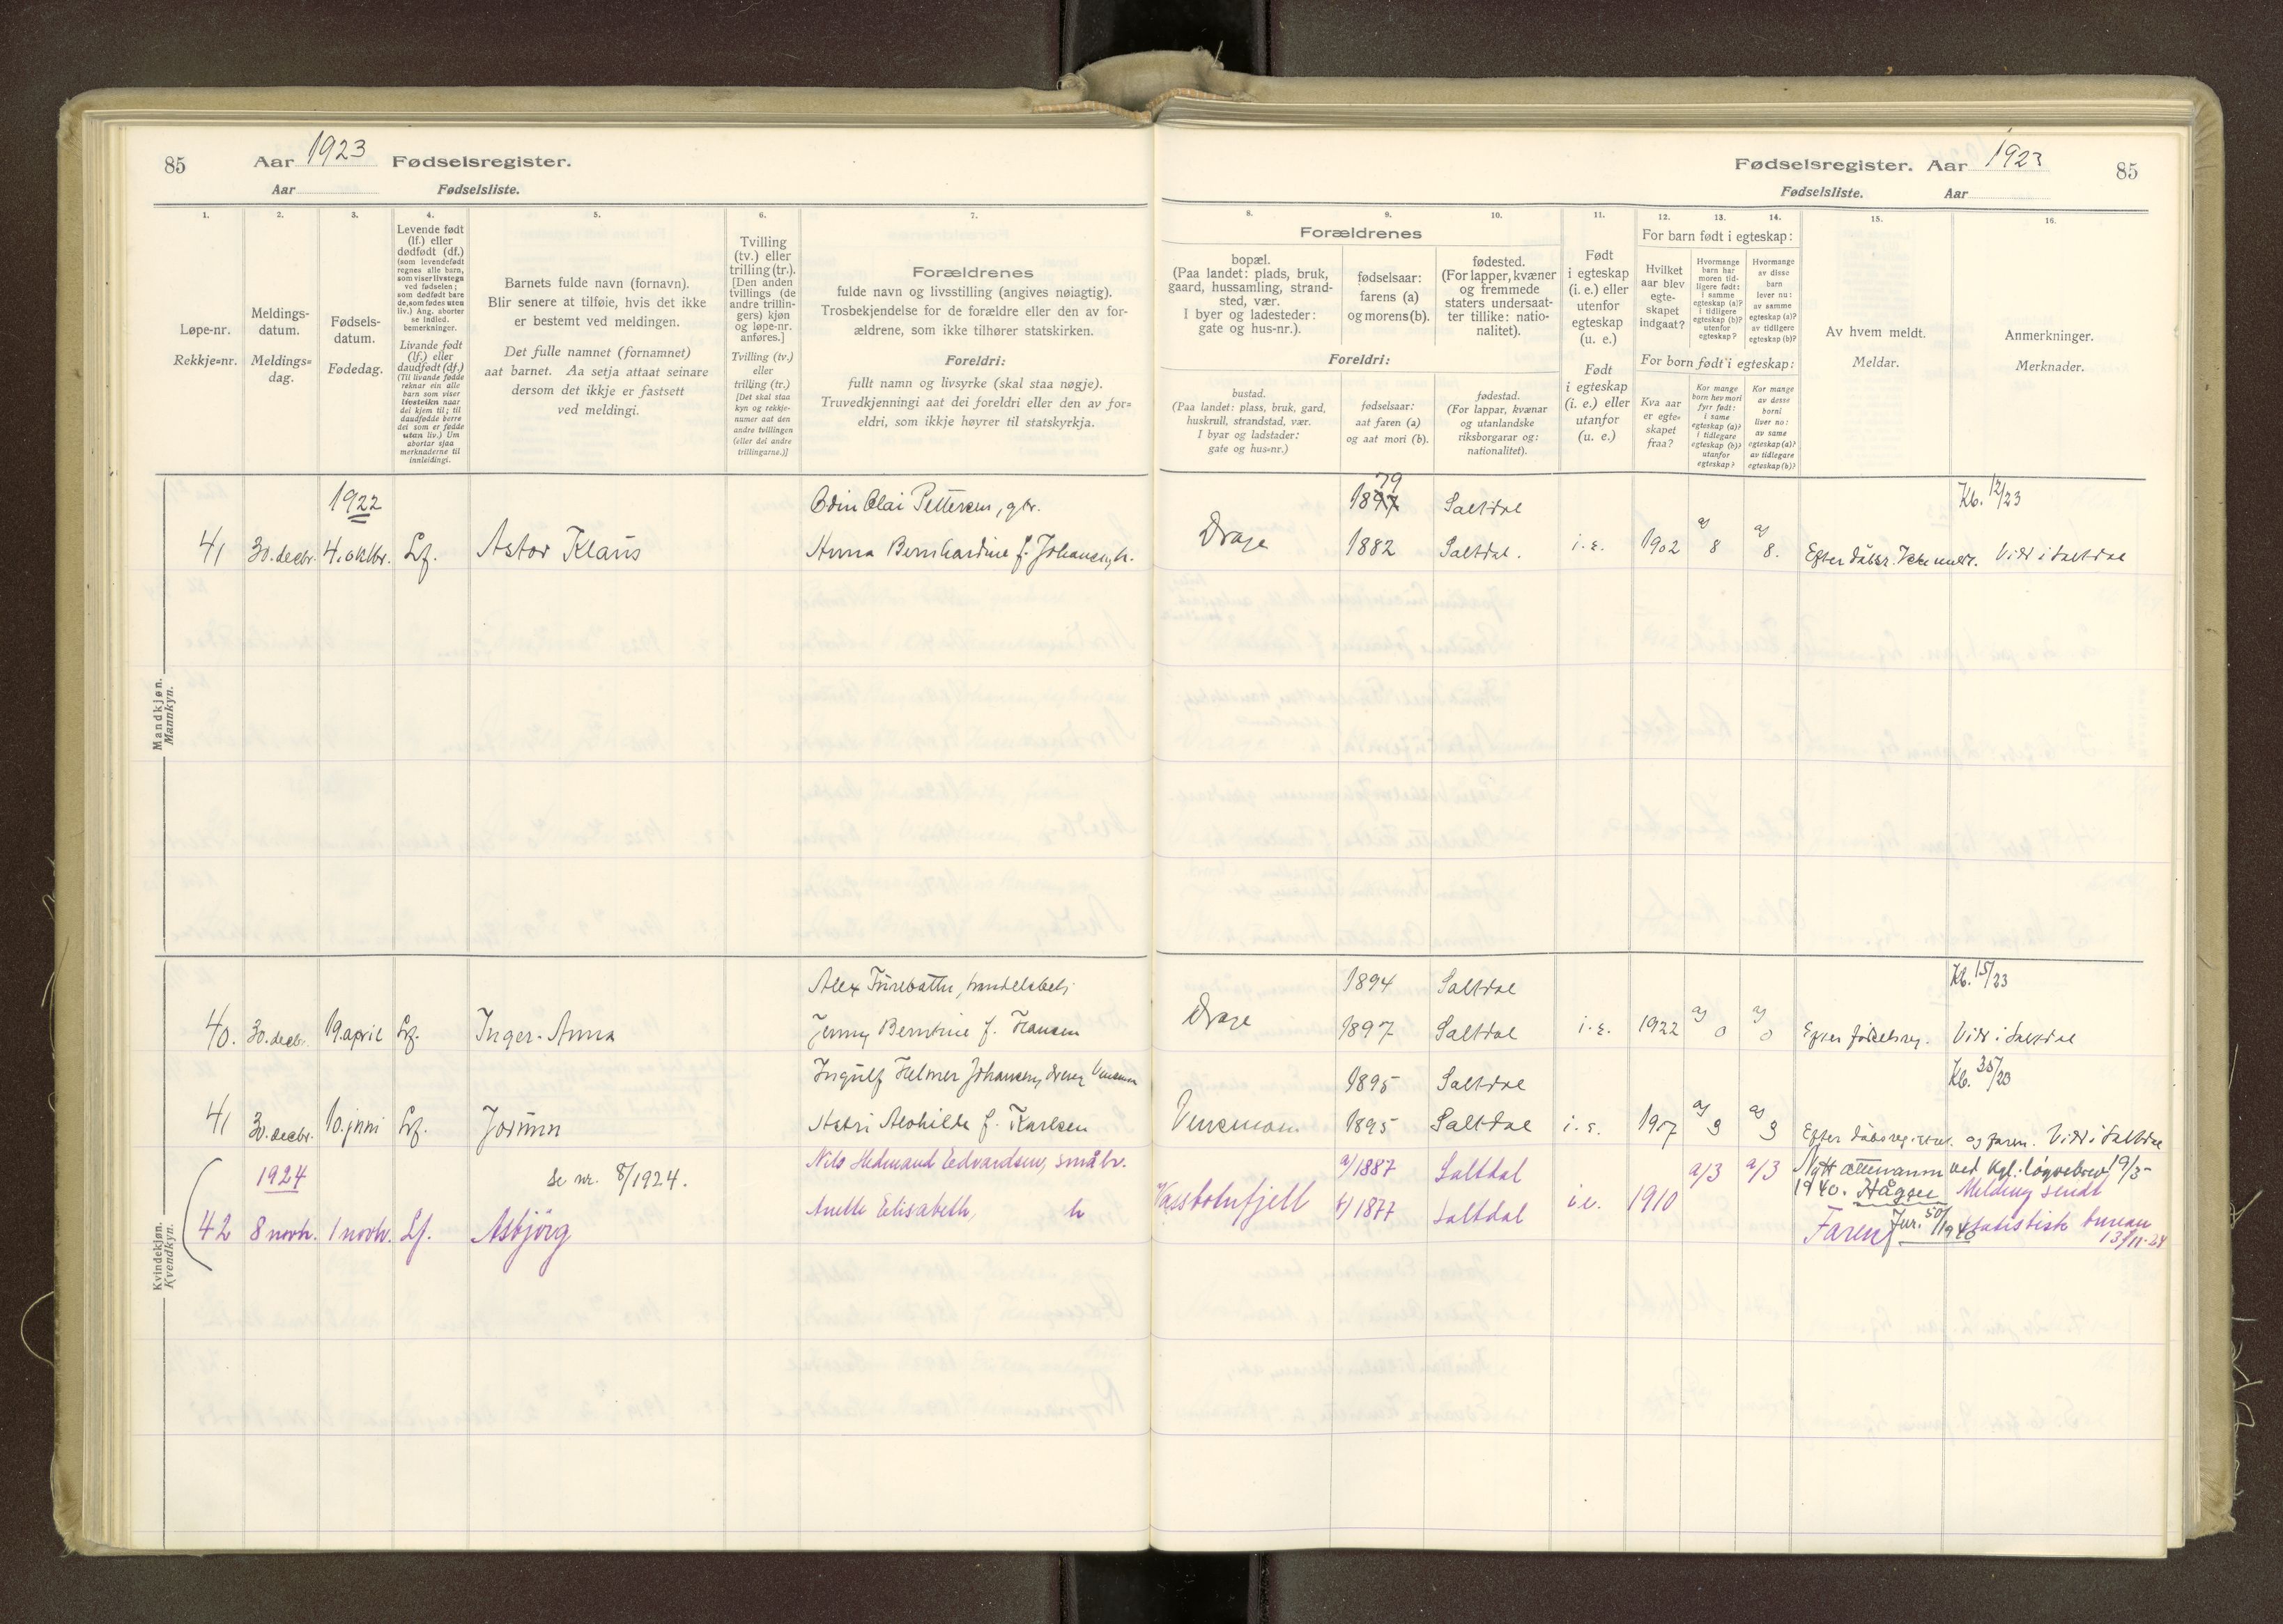 85 Aar 1923 Fødselsregister.
Aar Fødselsliste.
1. 2. 3. 4. 5. 6. 7.
Løpe-nr.
Rekkje=nr.
Meldings-
datum.
Meldings=
dag.
Fødsels-
datum.
Fødedag.
Levende født
(lf.) eller
dødfødt (df.)
(som levendefødt
regnes alle barn,
som viser livstegn
ved fødselen;
som dødfødt bare
de, som fødes uten
liv.) Ang. aborter
se indled.
bemerkninger.
Livande født
(lf.) eller
daudfødt (df.)
(Til livande fødde
reknar ein alle
barn som viser
livsteikn naar
dei kjem til; til
daudfødde berre
dei som er fødde
utan liv.) Um
abortar sjaa
merknaderne til
innleidingi.
Barnets fulde navn (fornavn).
Blir senere at tilføie, hvis det ikke
er bestemt ved meldingen.
Det fulle namnet (fornamnet)
aat barnet. Aa setja attaat seinare
dersom det ikkje er fastsett
ved meldingi.
Tvilling
(tv.) eller
trilling (tr.).
[Den anden
tvillings (de
andre trillin-
gers) kjøn
og løpe-nr.
anføres.]
Tvilling (tv.)
eller
trilling (tr.)
[Det skal staa
kyn og rekkje-
numer aat den
andre tvillingen
(eller dei andre
trillingarne.)]
Forældrenes
fulde navn og livsstilling (angives nøiagtig).
Trosbekjendelse for de forældre eller den av for-
ældrene, som ikke tilhører statskirken.
Foreldri:
fullt namn og livsyrke (skal staa nøgje).
Truvedkjenningi aat dei foreldri eller den av for=
eldri, som ikkje høyrer til statskyrkja.
Mandkjøn.
Mannkyn.
1922
Odin Olai Pettersen, gbr.
41 30. decbr. 4. oktbr. Lf. Astor Klaus Anna Bernhardine f. Johansen, h.
Kvindekjøn.
Kvendkyn.
Alex Furebotn, handelsbetj.
40. 30. decbr. 19. april Lf. Inger-Anna Jenny Berntine f. Hansen
Ingulf Helmer Johansen,
41 30. decbr. 10. juni Lf. Jorunn f. Karlsen
1924 Se nr. 8/1924. Nils Hedmand Edvardsen, småbr.
Anette Elisabeth, h
42 8 novb. 1 novb. Lf. Asbjörg
Fødselsregister. Aar 1923 85
Fødselsliste. Aar
8. 9. 10. 11. 12. 13. 14. 15. 16.
Forældrenes
bopæl.
(Paa landet: plads, bruk,
gaard, hussamling, strand-
sted, vær.
I byer og ladesteder:
gate og hus-nr.).
fødselsaar:
farens (a)
og morens (b).
fødested.
(For lapper, kvæner
og fremmede
staters undersaat-
ter tillike: natio-
nalitet).
Foreldri:
bustad.
(Paa landet: plass, bruk, gard,
huskrull, strandstad, vær.
I byar og ladstader:
gate og hus=nr.)
fødselsaar:
aat faren (a)
og aat mori (b).
fødestad.
(For lappar, kvænar
og utanlandske
riksborgarar og:
nationalitet).
Født
i egteskap
(i. e.) eller
utenfor
egteskap
(u. e.)
Født
i egteskap
(i. e.) eller
utanfor
(u. e.)
For barn født i egteskap:
Hvilket
aar blev
egte-
skapet
indgaat?
Hvormange
barn har
moren tid-
ligere født:
i samme
egteskap (a)?
i tidligere
egteskap (b)?
utenfor
egteskap?
Hvormange
av disse
barn
lever nu:
av samme
egteskap (a)?
av tidligere
egteskap (b)?
For born født i egteskap:
Kva aar
er egte-
skapet
fraa?
Kor mange
born hev mori
fyrr født:
i same
egteskap (a)?
i tidlegare
egteskap (b)?
utanfor
egteskap?
Kor mange
av desse
borni
liver no:
av same
egteskap (a)?
av tidlegare
egteskap (b)?
Av hvem meldt.
Meldar.
Anmerkninger.
Merknader.
79
1897 Saltdal Kb. 12/23
1882 Saltdal. i. e. 1902 a) 8 a) 8. Vidr i Saltdal
1894 Saltdal Kb. 15/23
1897 Saltdal i. e. 1922 a) 0 a) 0 Efter fødselsreg. Vidr i Saltdal
1895 Saltdal Kb.
1895 Saltdal i. e. a) 3 a) 3 Efter dåbsregistret og faren. Vidr i Saltdal
a) 1887 Saltdal a/3 a/3 Nytt ættenavn ved kgl. løyvebrev 19/3-
Vassbotnfjell b) 1877 Saltdal i. e. 1910 1940. Melding sendt
Faren Jnr. 50/1940 statistisk bureau
13/11-24